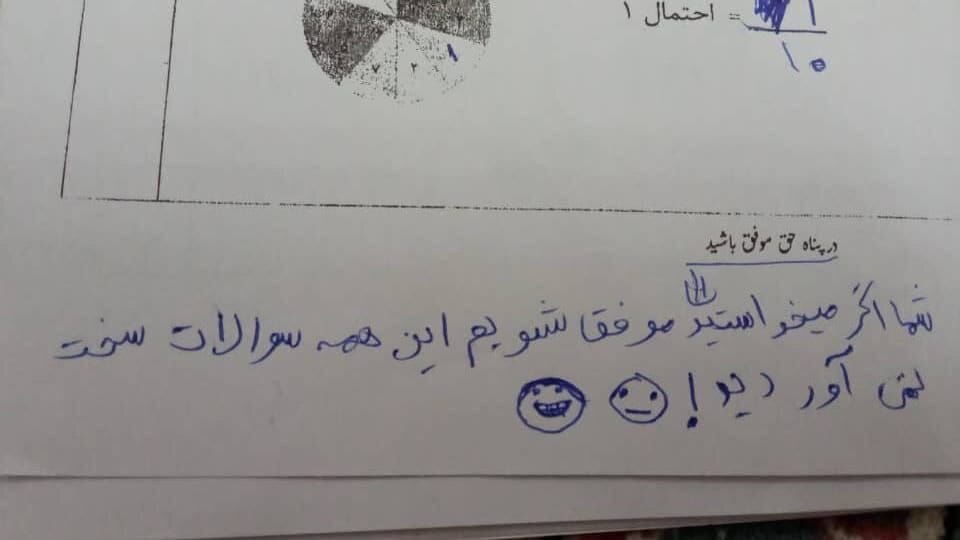 احتمال ۱ = ۱
۱۰
۱
۲
۷
در پناه حق موفق باشید
شما اگر میخواستید موفق شویم این همه سوالات سخت
نمی آوردید!